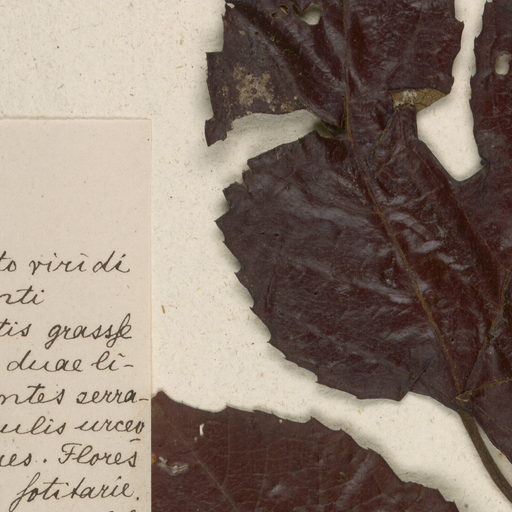 to viridi
nti
tis grasse
duae li-
ntes serra-
ulis urceo
es. Flores
fotitarie.